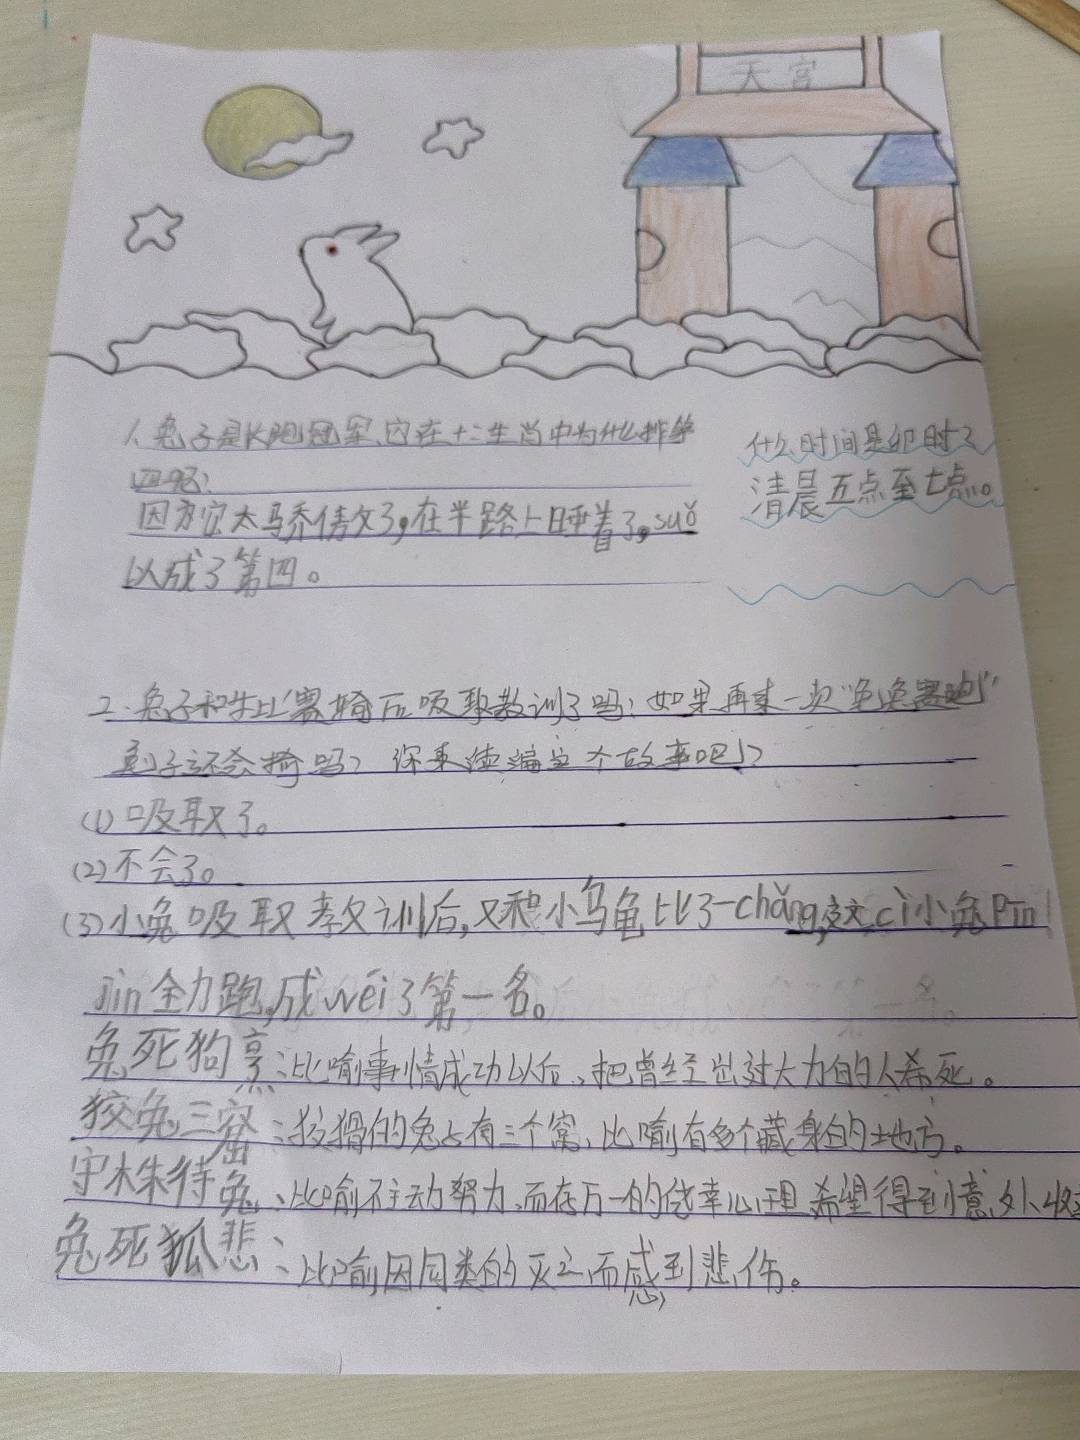 天宫
1、兔子是长跑冠军、它在十二生肖中为什么排第
四呢?
因为它太马乔傲了,在半路上睡着了,suǒ
以成了第四。
什么时间是卯时?
清晨五点至七点。
二、兔子和牛比赛输后吸取教训了吗?如果再来一次“龟兔赛跑”
兔子还会输吗?你来续编这个故事吧!?
(1)吸取了。
(2)不会了。
(3)小兔吸取教训后,又和小乌龟比了一chǎng,这cì小兔Pīn
jìn全力跑,成wéi了第一名。
兔死狗烹:比喻事情成功以后、把曾经出过大力的人杀死。
狡兔三窟:狡猾的兔占有三个窝、比喻有多个藏身的地方。
守株待兔、比喻不主动努力、而存万一的侥幸心理、希望得到意外收
兔死狐悲、比喻因同类的灭亡而感到悲伤。